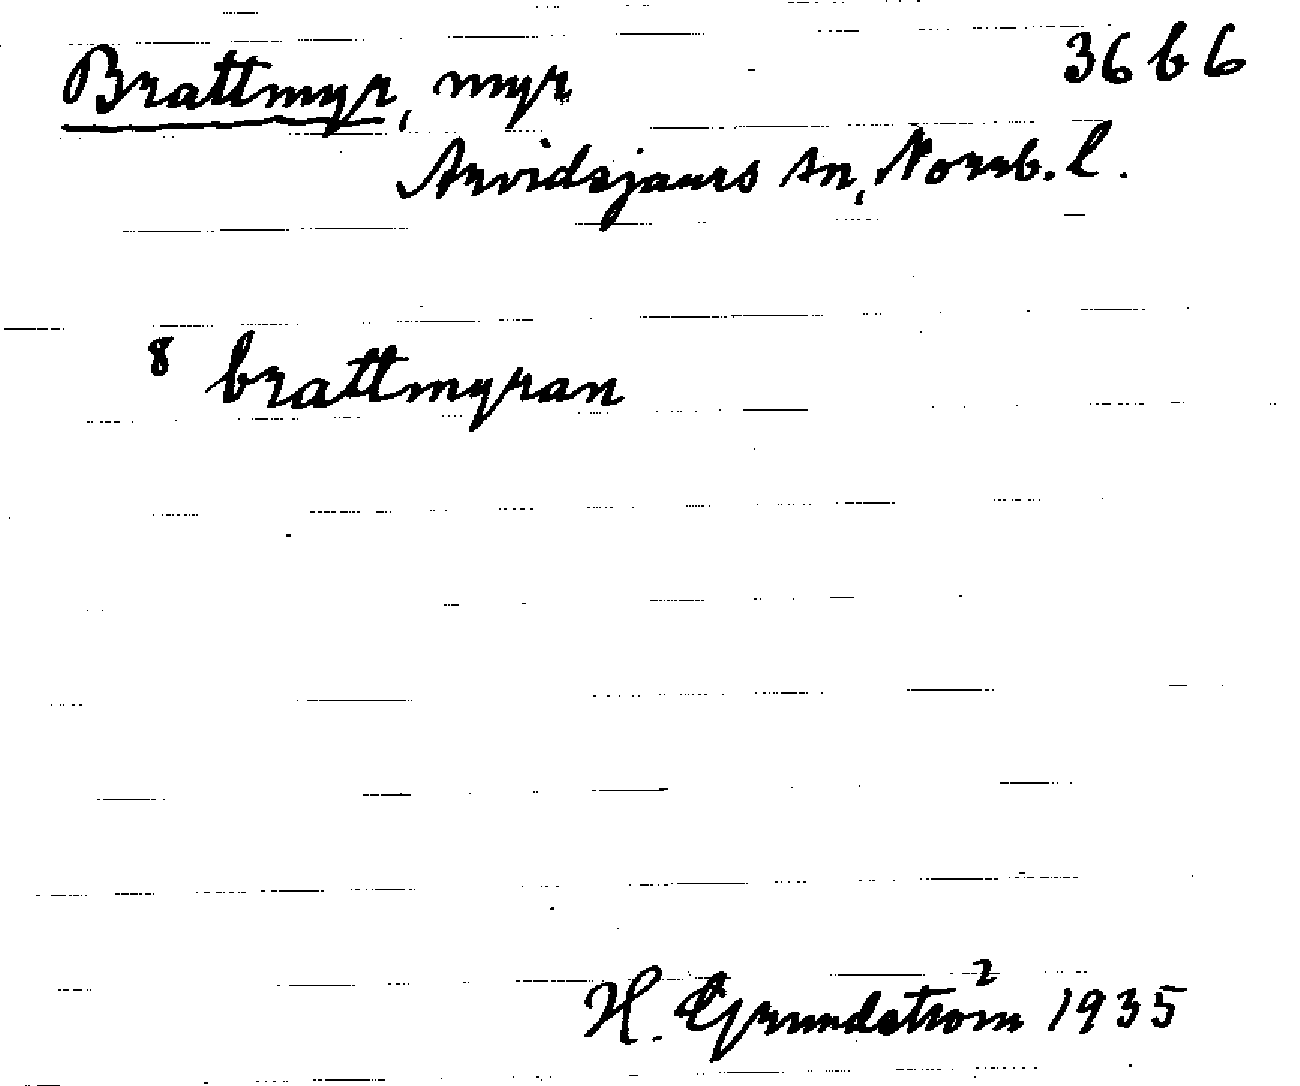 Brattmyr, myr 36 b 6
Arvidsjaurs sn, Norrb. l.
8 brattmyran
H. Grundström 1935